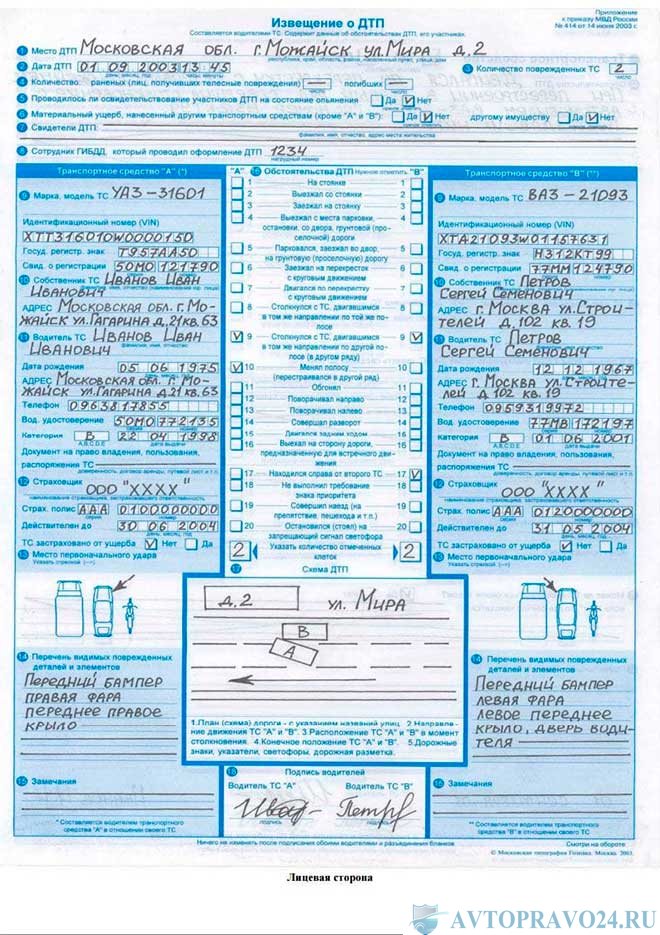 Приложение
к приказу МВД России
№ 414 от 14 июня 2003 г.
Извещение о ДТП
Составляется водителями ТС. Содержит данные об обстоятельствах ДТП, его участниках.
1 Место ДТП Московская обл. г. Можайск ул. Мира д. 2
республика, край, область, район, населенный пункт, улица, дом
2 Дата ДТП 01 09 2003 13 45
день, месяц, год часы, минуты
3 Количество поврежденных ТС 2
число
4 Количество: раненых (лиц, получивших телесные повреждения) — погибших —
5 Проводилось ли освидетельствование участников ДТП на состояние опьянения Да Нет
6 Материальный ущерб, нанесенный другим транспортным средствам (кроме "А" и "В") Да Нет другому имуществу Да Нет
7 Свидетели ДТП:
фамилия, имя, отчество, адрес места жительства
8 Сотрудник ГИБДД, который проводил оформление ДТП 1234
нагрудный номер
Транспортное средство "А" (*)
9 Марка, модель ТС УАЗ-31601
Идентификационный номер (VIN)
XTT316010W0000150
Госуд. регистр. знак Т957АА50
Свид. о регистрации 50МО 121790
10 Собственник ТС Иванов Иван
Иванович
АДРЕС Московская обл. г. Мо-
жайск ул. Гагарина д. 21 кв. 63
11 Водитель ТС Иванов Иван
Иванович
фамилия, имя, отчество
Дата рождения 05 06 1975
день, месяц, год
АДРЕС Московская обл. г. Мо-
жайск ул. Гагарина д. 21 кв. 63
Телефон 0963817855
Вод. удостоверение 50МО 772135
серия номер
Категория В 22 04 1998
A,B,C,D,E дата выдачи
Документ на право владения, пользования,
распоряжения ТС
доверенность, договор аренды, путевой лист и т.п.
12 Страховщик
ООО "ХХХХ"
наименование страховщика, застраховавшего ответственность
Страх. полис ААА 0100000000
серия номер
Действителен до 30 06 2004
день, месяц, год
ТС застраховано от ущерба Нет Да
13 Место первоначального удара
Указать стрелкой (—>)
14 Перечень видимых поврежденных
деталей и элементов
Передний бампер
правая фара
переднее правое
крыло
15 Замечания
* Составляется водителем транспортного
средства "А" в отношении своего ТС
"А" 16 Обстоятельства ДТП Нужное отметить "В"
1 На стоянке 1
2 Выезжал со стоянки 2
3 Заезжал на стоянку 3
4 Выезжал с места парковки, 4
остановки, со двора, грунтовой (про-
селочной) дороги
5 Парковался, заезжал во двор, 5
на грунтовую (проселочную) дорогу
6 Заезжал на перекресток 6
с круговым движением
7 Двигался по перекрестку 7
с круговым движением
8 Столкнулся с ТС, двигавшимся 8
в том же направлении по той же по-
лосе
9 Столкнулся с ТС, двигавшимся 9
в том же направлении по другой полосе
(в другом ряду)
10 Менял полосу 10
(перестраивался в другой ряд)
11 Обгонял 11
12 Поворачивал направо 12
13 Поворачивал налево 13
14 Совершал разворот 14
15 Двигался задним ходом 15
16 Выехал на сторону дороги, 16
предназначенную для встречного дви-
жения
17 Находился справа от второго ТС 17
18 Не выполнил требование 18
знака приоритета
19 Совершил наезд (на 19
препятствие, пешехода и т.п.)
20 Остановился (стоял) на 20
запрещающий сигнал светофора
2 Указать количество отмеченных 2
клеток
17 Схема ДТП
д. 2 ул. Мира
В
А
1.План (схема) дороги - с указанием названий улиц. 2 Направле-
ние движения ТС "А" и "В". 3 Расположение ТС "А" и "В" в момент
столкновения. 4.Конечное положение ТС "А" и "В". 5.Дорожные
знаки, указатели, светофоры, дорожная разметка.
18 Подпись водителей
Водитель ТС "А" Водитель ТС "В"
подпись подпись
Транспортное средство "В" (**)
9 Марка, модель ТС ВАЗ-21093
Идентификационный номер (VIN)
XTA21093W01157631
Госуд. регистр. знак Н312КТ99
Свид. о регистрации 77ММ 124790
10 Собственник ТС Петров
Сергей Семенович
АДРЕС г. Москва ул. Строи-
телей д. 102 кв. 19
11 Водитель ТС Петров
Сергей Семенович
фамилия, имя, отчество
Дата рождения 12 12 1967
день, месяц, год
АДРЕС г. Москва ул. Строите-
лей д. 102 кв. 19
Телефон 0959319972
Вод. удостоверение 77МВ 172197
серия номер
Категория В 01 06 2001
A,B,C,D,E дата выдачи
Документ на право владения, пользования,
распоряжения ТС
доверенность, договор аренды, путевой лист и т.п.
12 Страховщик
ООО "ХХХХ"
наименование страховщика, застраховавшего ответственность
Страх. полис ААА 0120000000
серия номер
Действителен до 31 05 2004
день, месяц, год
ТС застраховано от ущерба Нет Да
13 Место первоначального удара
Указать стрелкой (—>)
14 Перечень видимых поврежденных
деталей и элементов
Передний бампер
левая фара
левое переднее
крыло, дверь води-
теля
15 Замечания
** Составляется водителем транспортного
средства "В" в отношении своего ТС
Ничего не изменять после подписания обоими водителями и разъединения бланков
Смотри на обороте
© Московская типография Гознака. Москва. 2003.
Лицевая сторона
AVTOPRAVO24.RU